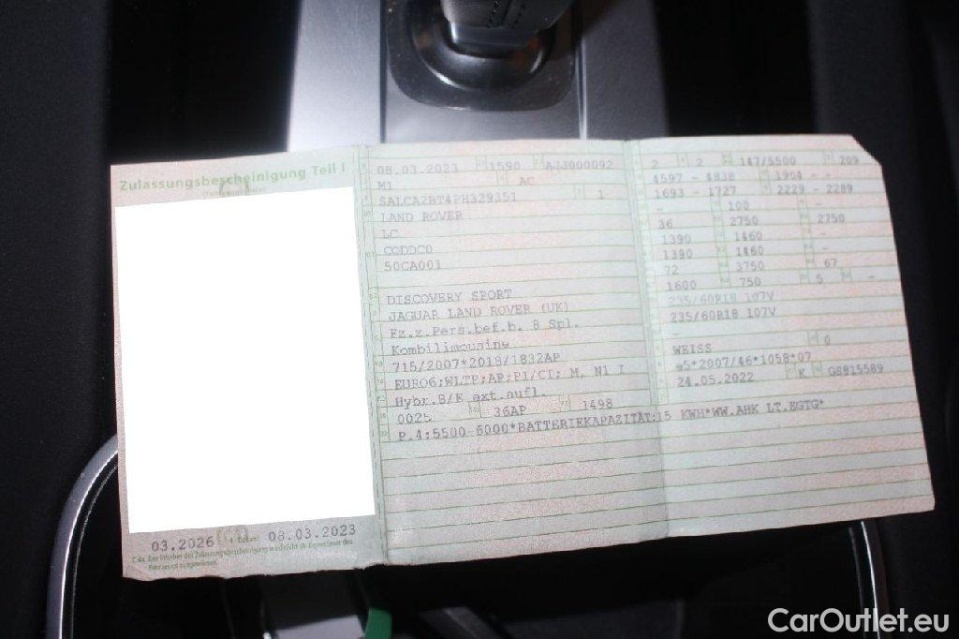 Zulassungsbescheinigung Teil I
08.03.2023 1590 AJJ000092 2 2 147/5500 209
M1 AC 4597 - 4838 1904 - -
SALCA2BT4PH329351 1 1693 - 1727 2229 - 2289
LAND ROVER - 100 -
LC 36 2750 2750
CODDC0 1390 1460 -
50CA001 1390 1460 -
72 3750 67
1600 750 5 -
DISCOVERY SPORT 235/60R18 107V
JAGUAR LAND ROVER (UK) 235/60R18 107V
Fz.z.Pers.bef.b. 8 Spl.
Kombilimousine WEISS 0
715/2007*2018/1832AP e5*2007/46*1058*07
EURO6;WLTP;AP;PI/CI; M, N1 I 24.05.2022 K GS815589
Hybr.B/E ext.aufl.
0025 36AP 1498
P.4:5500-6000*BATTERIEKAPAZITÄT:15 KWH*WW.AHK LT.EGTG*
03.2026 Datum: 08.03.2023
CarOutlet.eu